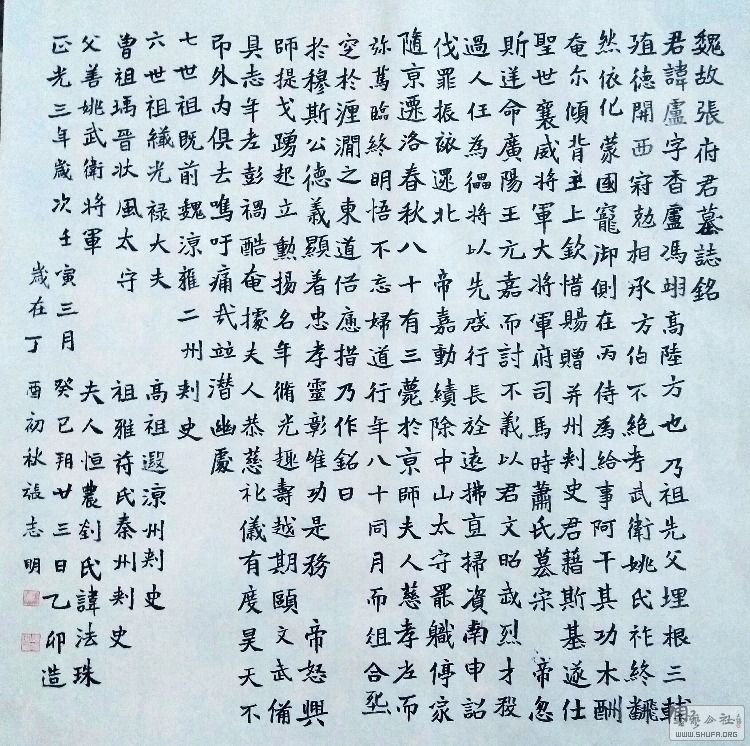 魏故張府君墓誌銘
君諱盧字香盧馮翊高陸方也乃祖先父埋根三輔
殖德開西冠勉相承方伯不絕考武衛姚氏祚終翻
然依化蒙國寵御側在丙侍為給事阿干其功木酬
奄尔傾背主上欽惜賜贈并州刺史君藉斯基遂仕
聖世襄威將軍大將軍府司馬時蕭氏墓宗帝忽
斯逆命廣陽王元嘉而討不義以君文昭武烈才殺
過人任為偏將以先啓行長於遠拂直掃資南申詔
伐罪振旅還北帝嘉勳績除中山太守罷職停家
隨京遷洛春秋八十有三薨於京師夫人慈孝左而
弥篤臨終明悟不忘婦道行年八十同月而俎合葬
空於湹澗之東道侶應措乃作銘曰
於穆斯公德義顯著忠孝靈彰惟功是務帝怒興
師提戈踴起立勳揚名年脩光趣壽越期頤文武備
具志年左彭禍酷奄據夫人恭慈礼儀有度昊天不
弔外內俱去嗚呼痛哉竝潛幽處
七世祖既前魏涼雍二州刺史
六世祖纎光禄大夫 高祖遐涼州刺史
曾祖瑀晋狀風太守 祖雅苻氏秦州刺史
父善姚武衛將軍 夫人恒農劉氏諱法珠
正光三年歲次壬寅三月癸巳朔廿三日乙卯造
歲在丁酉初秋張志明
書法公社
WWW.SHUFA.ORG